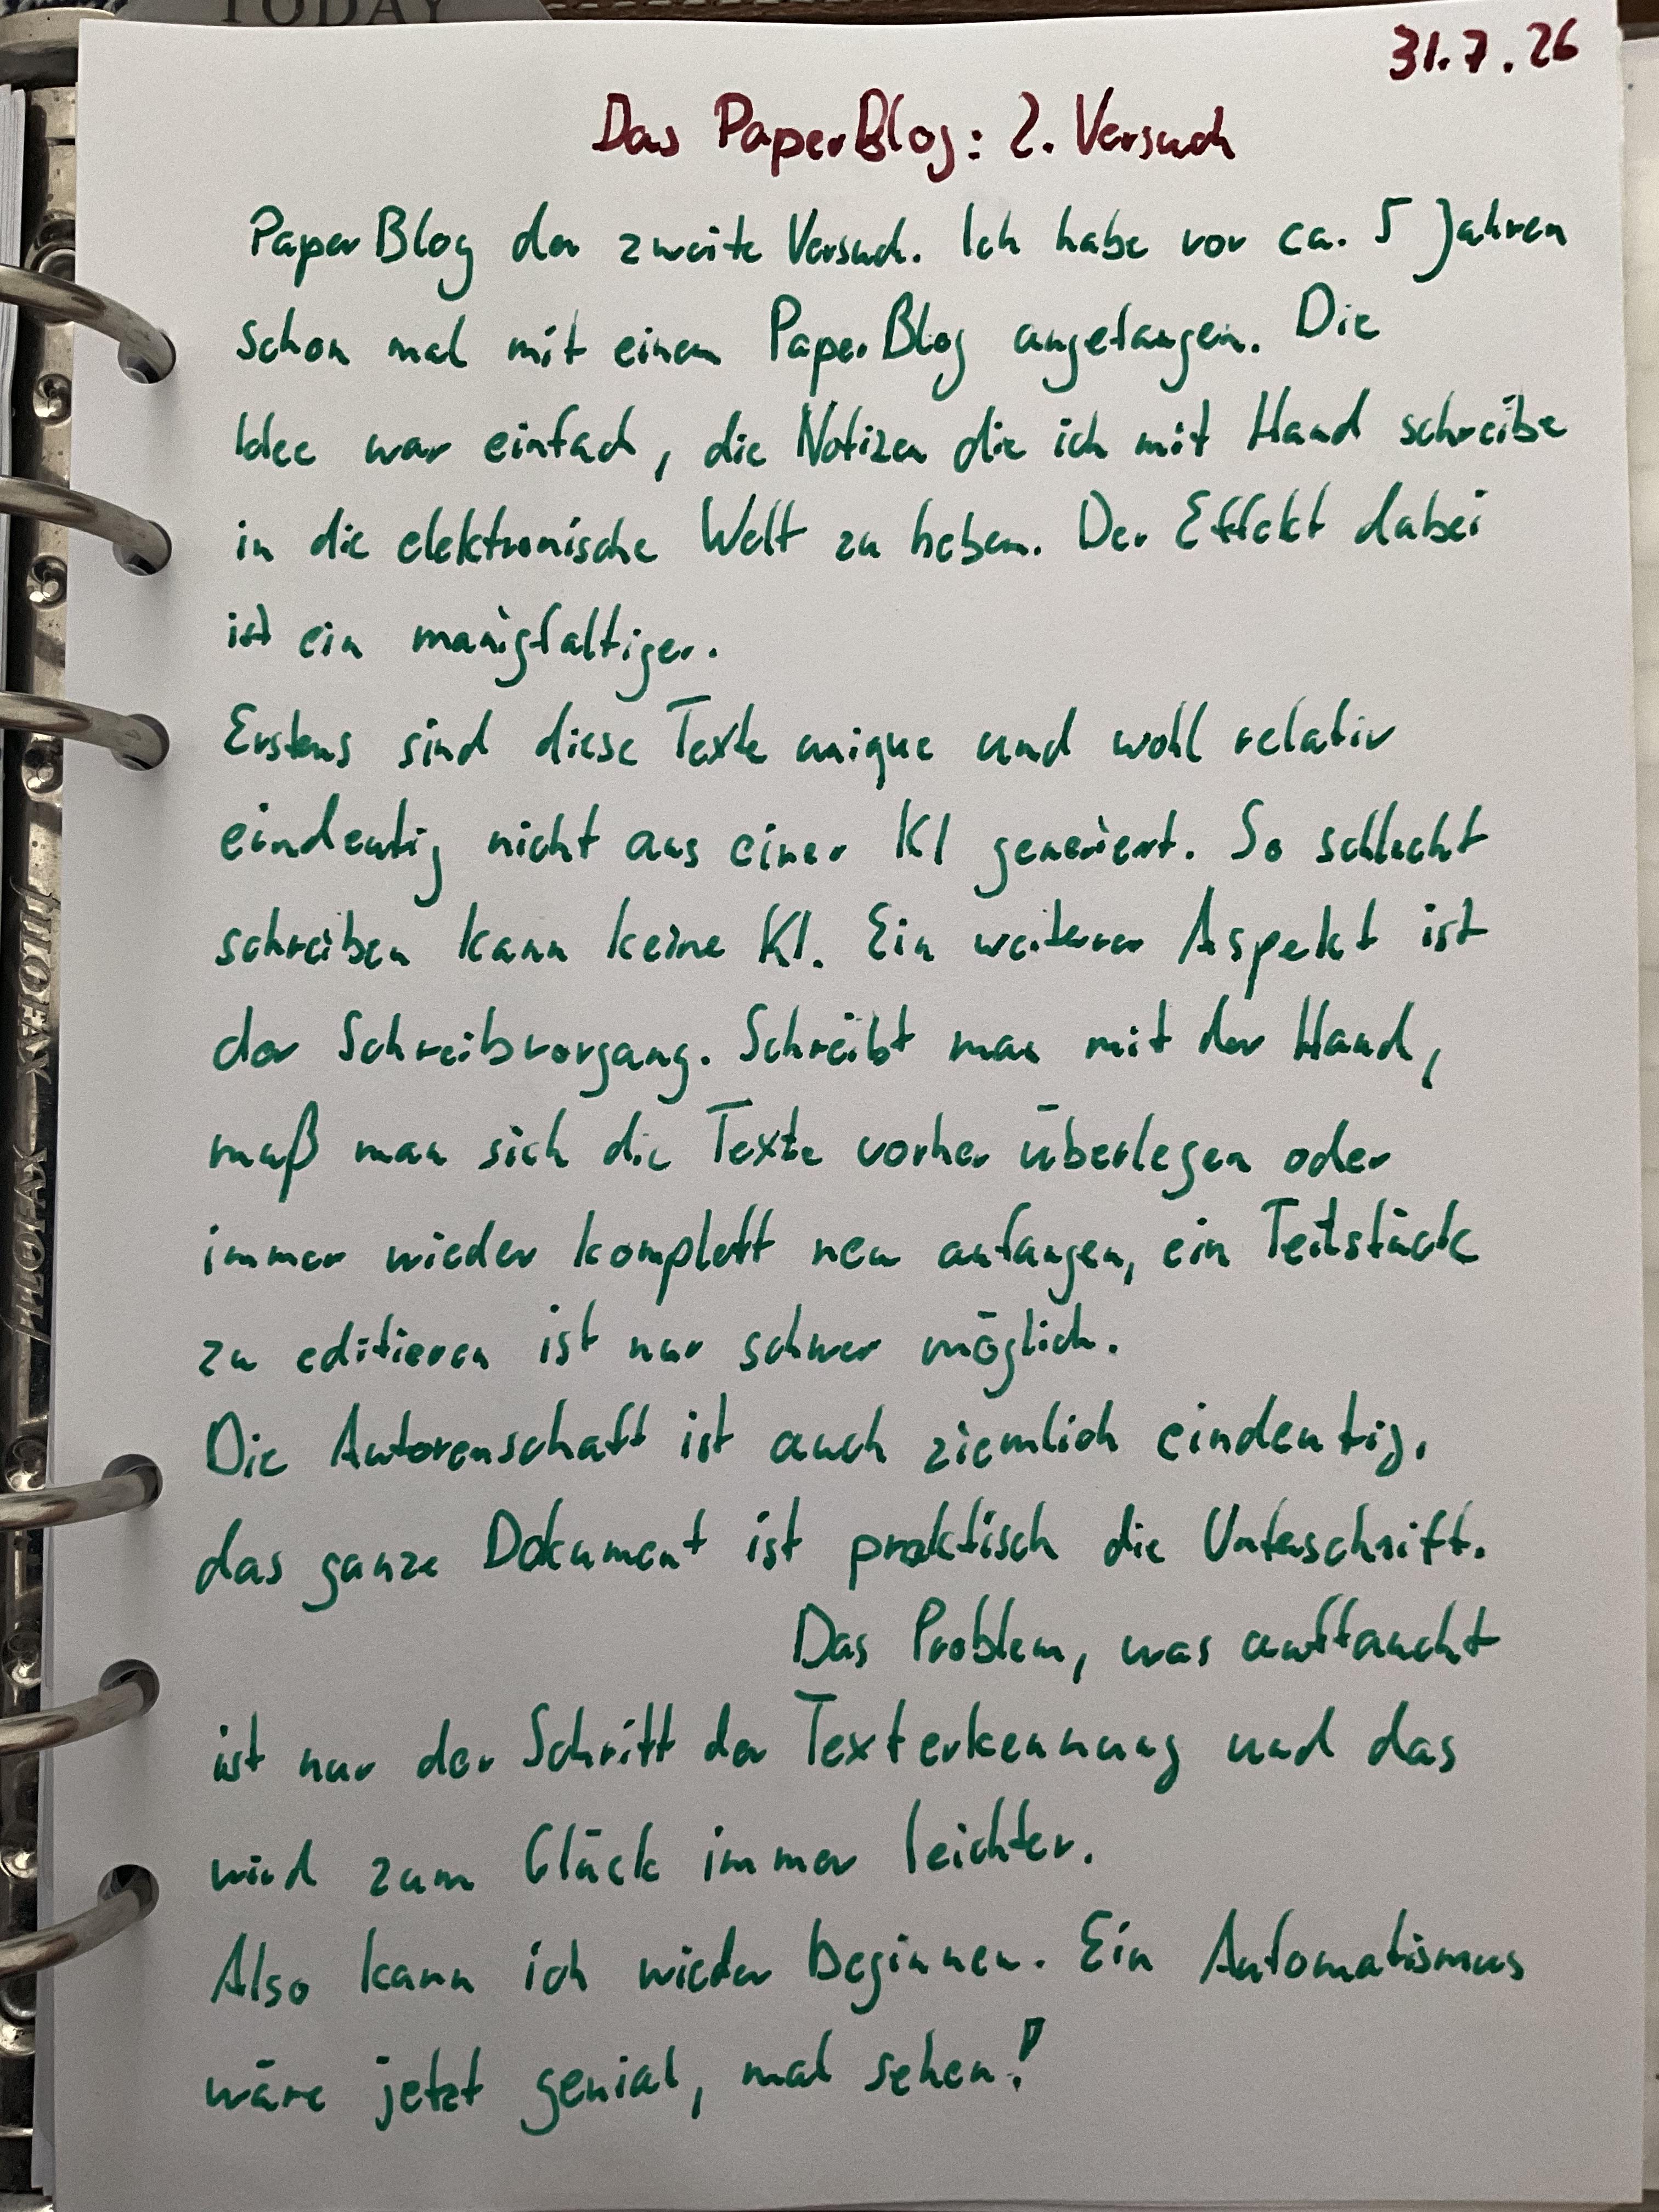 TODAY
31.7.26
Das PaperBlog: 2. Versuch
PaperBlog der zweite Versuch. Ich habe vor ca. 5 Jahren
schon mal mit einem PaperBlog angefangen. Die
Idee war einfach, die Notizen die ich mit Hand schreibe
in die elektronische Welt zu heben. Der Effekt dabei
ist ein manigfaltiger.
Erstens sind diese Texte unique und wohl relativ
eindeutig nicht aus einer KI generiert. So schlecht
schreiben kann keine KI. Ein weiterer Aspekt ist
der Schreibvorgang. Schreibt man mit der Hand,
muß man sich die Texte vorher überlegen oder
immer wieder komplett neu anfangen, ein Teilstück
zu editieren ist nur schwer möglich.
Die Autorenschaft ist auch ziemlich eindeutig,
das ganze Dokument ist praktisch die Unterschrift.
Das Problem, was auftaucht
ist nur der Schritt der Texterkennung und das
wird zum Glück immer leichter.
Also kann ich wieder beginnen. Ein Automatismus
wäre jetzt genial, mal sehen!